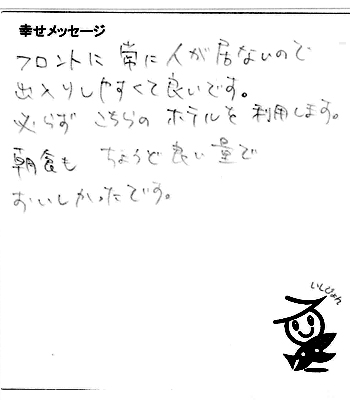 幸せメッセージ
フロントに 常に人が居ないので
出入りしやすくて良いです。
必らず こちらの ホテルを 利用します。
朝食も ちょうど良い量で
おいしかったです。